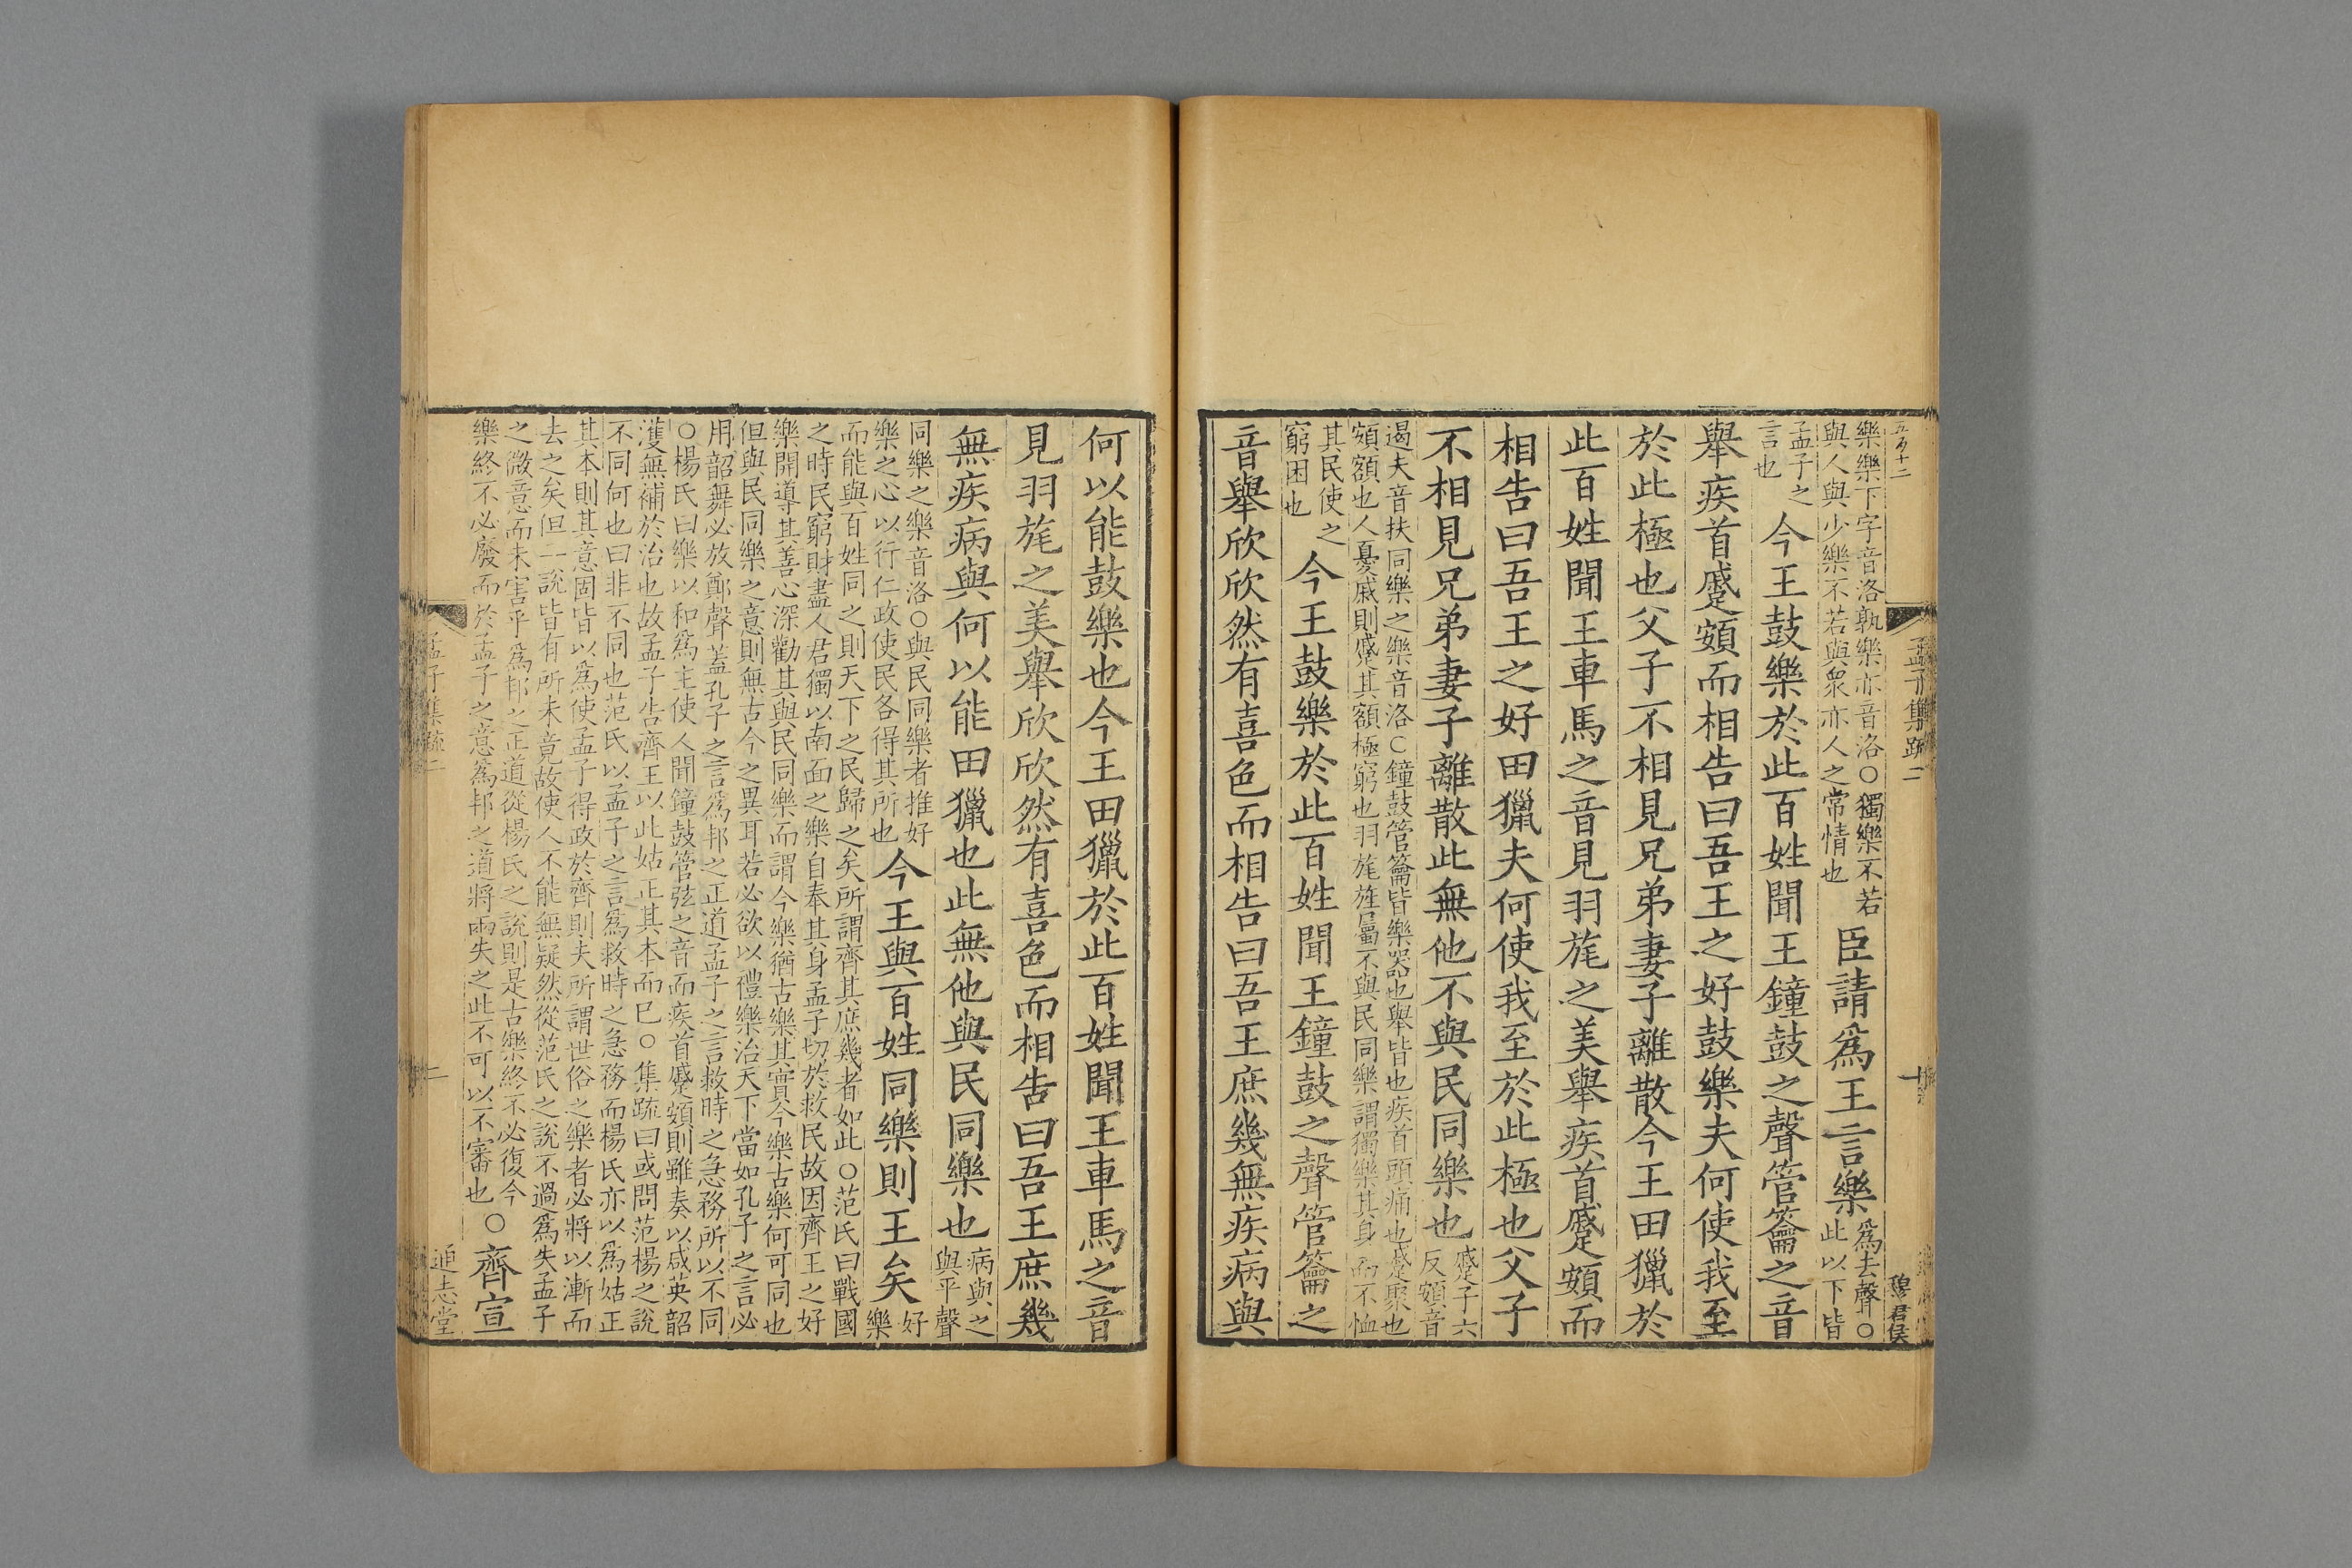 五百十二
孟子集疏二
十
穆君侯
樂樂下字音洛孰樂亦音洛○獨樂不若
與人與少樂不若與衆亦人之常情也
臣請爲王言樂
爲去聲○
此以下皆
孟子之
言也
今王鼓樂於此百姓聞王鐘鼓之聲管籥之音
舉疾首蹙頞而相告曰吾王之好鼓樂夫何使我至
於此極也父子不相見兄弟妻子離散今王田獵於
此百姓聞王車馬之音見羽旄之美舉疾首蹙頞而
相告曰吾王之好田獵夫何使我至於此極也父子
不相見兄弟妻子離散此無他不與民同樂也
蹙子六
反頞音
遏夫音扶同樂之樂音洛○鐘鼓管籥皆樂器也舉皆也疾首頭痛也蹙聚也
頞額也人憂戚則蹙其額極窮也羽旄旌屬不與民同樂謂獨樂其身而不恤
其民使之
窮困也
今王鼓樂於此百姓聞王鐘鼓之聲管籥之
音舉欣欣然有喜色而相告曰吾王庶幾無疾病與
何以能鼓樂也今王田獵於此百姓聞王車馬之音
見羽旄之美舉欣欣然有喜色而相告曰吾王庶幾
無疾病與何以能田獵也此無他與民同樂也
病與之
與平聲
同樂之樂音洛○與民同樂者推好
樂之心以行仁政使民各得其所也
今王與百姓同樂則王矣
好
樂
而能與百姓同之則天下之民歸之矣所謂齊其庶幾者如此○范氏曰戰國
之時民窮財盡人君獨以南面之樂自奉其身孟子切於救民故因齊王之好
樂開導其善心深勸其與民同樂而謂今樂猶古樂其實今樂古樂何可同也
但與民同樂之意則無古今之異耳若必欲以禮樂治天下當如孔子之言必
用韶舞必放鄭聲蓋孔子之言爲邦之正道孟子之言救時之急務所以不同
○楊氏曰樂以和爲主使人聞鐘鼓管弦之音而疾首蹙頞則雖奏以咸英韶
濩無補於治也故孟子告齊王以此姑正其本而已○集疏曰或問范楊之說
不同何也曰非不同也范氏以孟子之言爲救時之急務而楊氏亦以爲姑正
其本則其意固皆以爲使孟子得政於齊則夫所謂世俗之樂者必將以漸而
去之矣但二說皆有所未竟故使人不能無疑然從范氏之說不過爲失孟子
之微意而未害乎爲邦之正道從楊氏之說則是古樂終不必復今
樂終不必廢而於孟子之意爲邦之道將兩失之此不可以不審也○
齊宣
孟子集疏二
通志堂